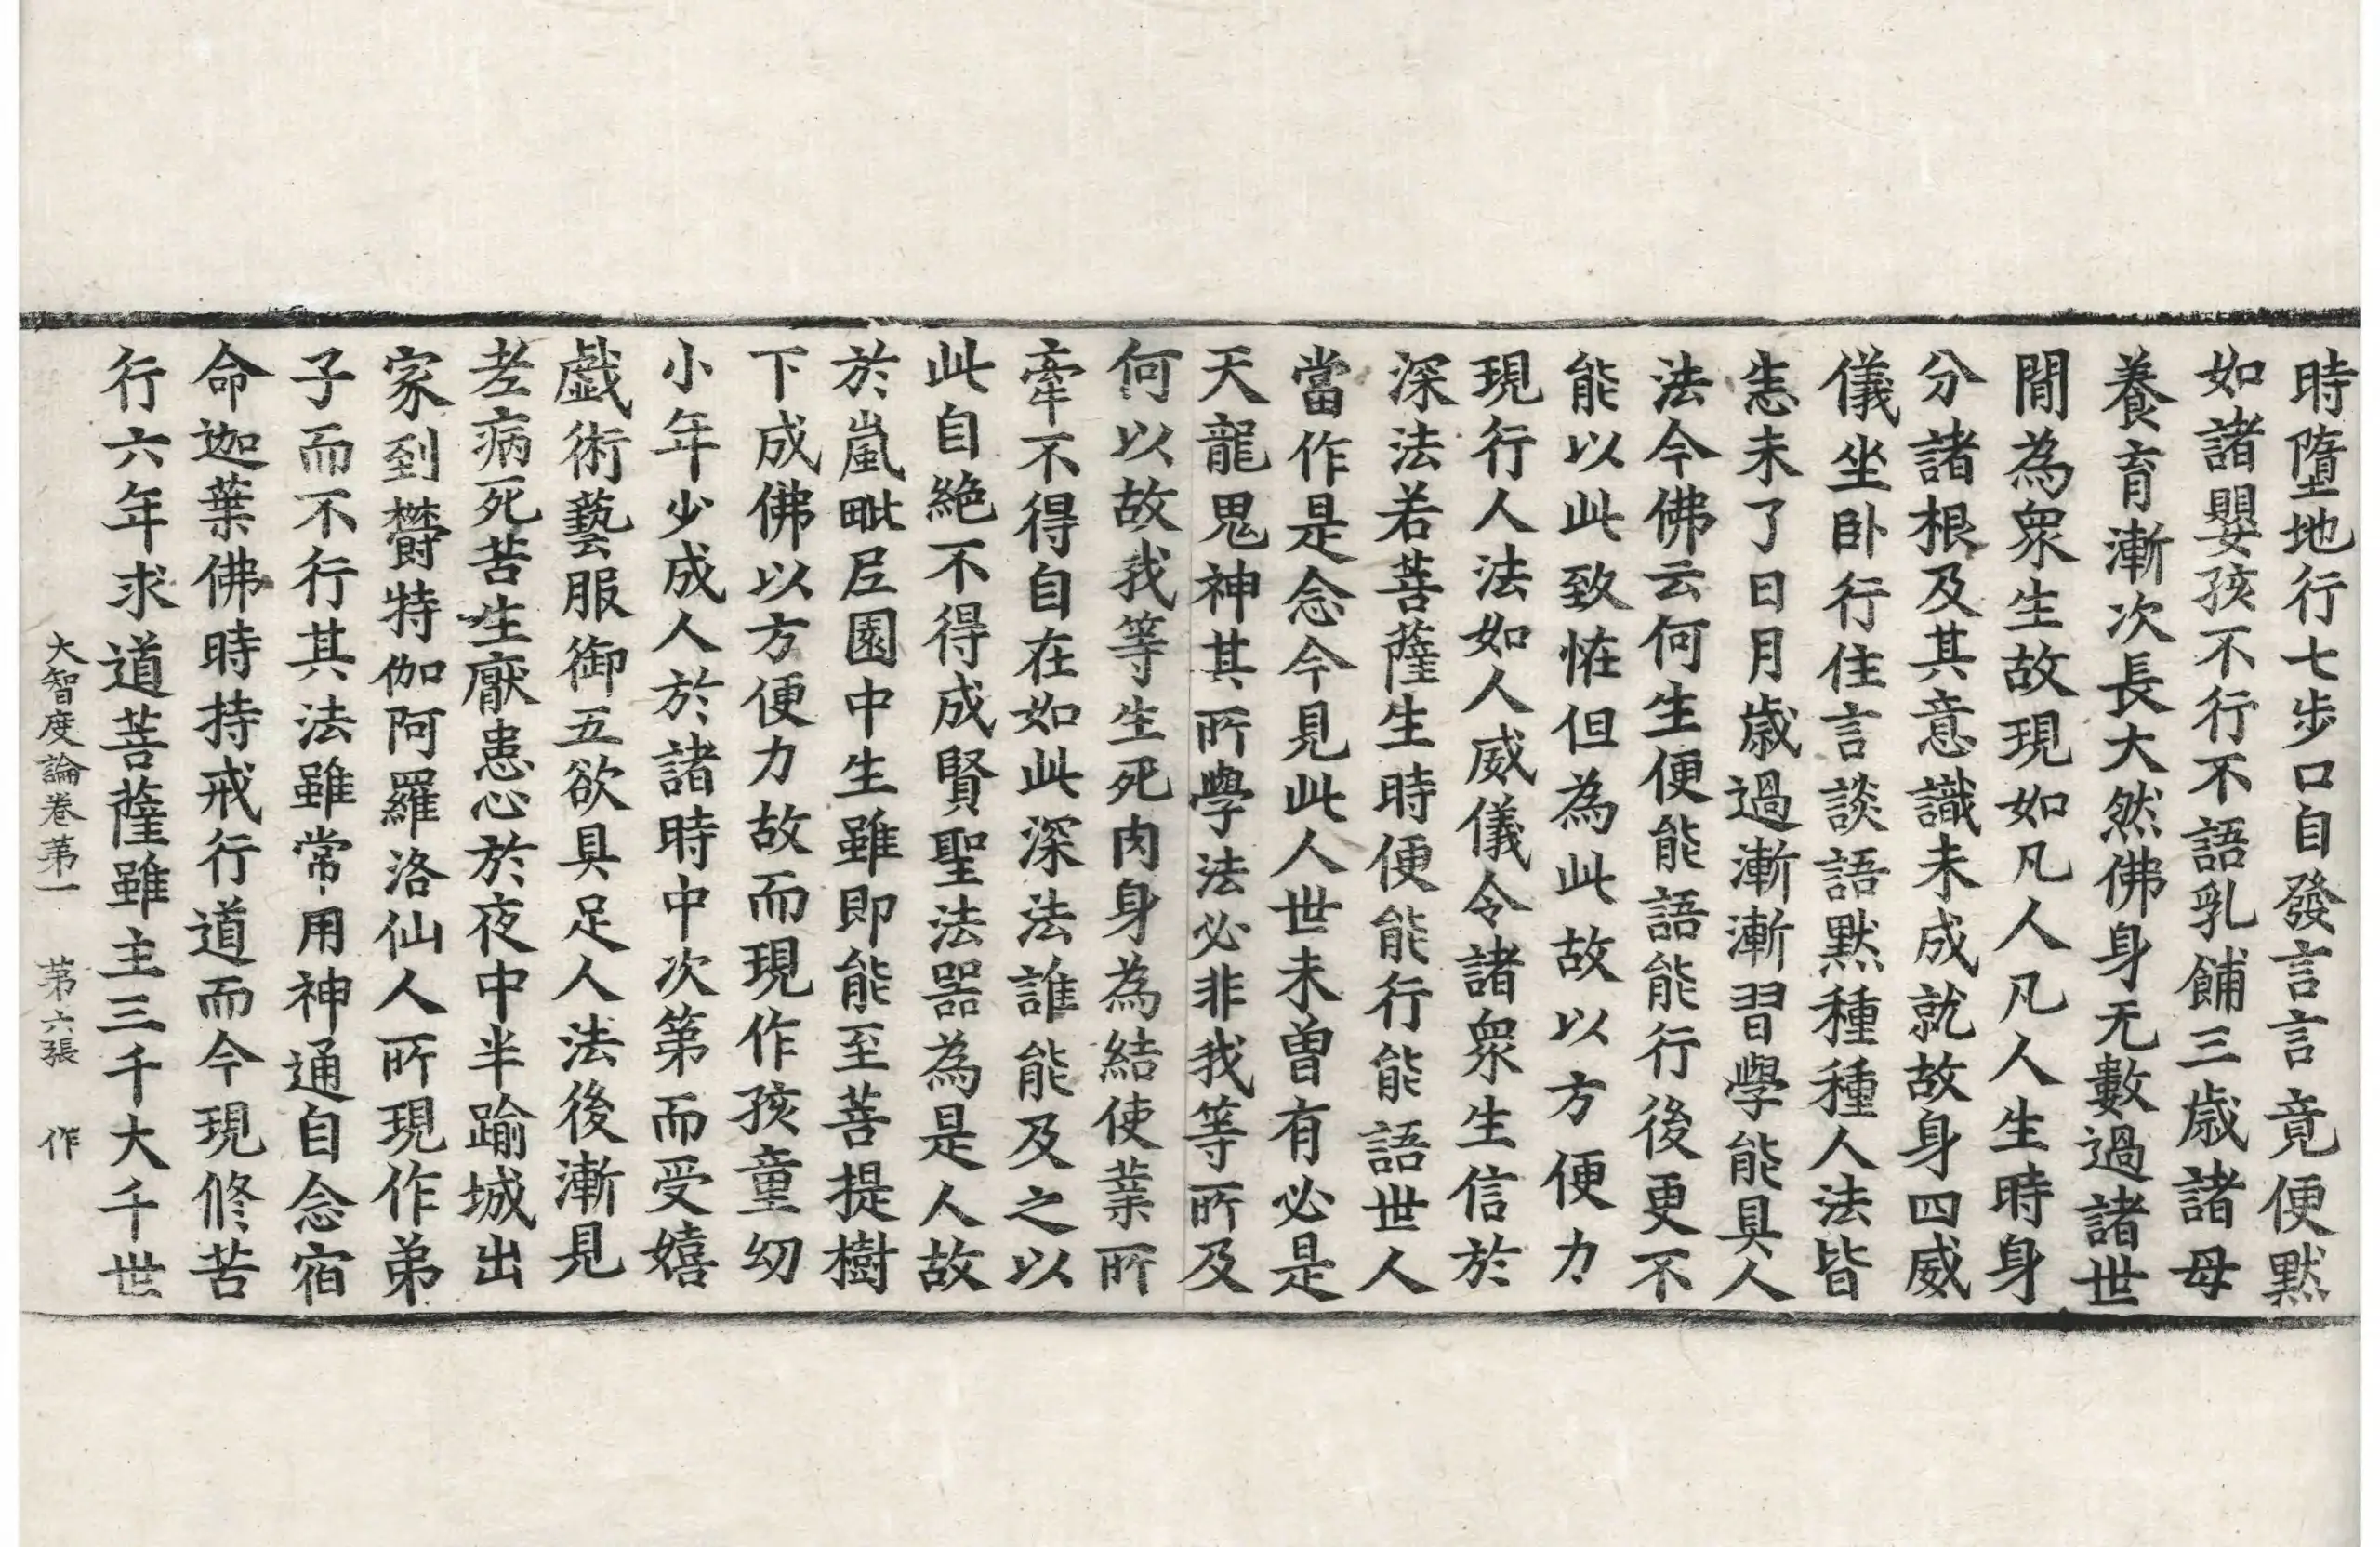 時墮地行七步口自發言言竟便黙
如諸嬰孩不行不語乳餔三歳諸母
養育漸次長大然佛身无數過諸世
閒為衆生故現如凡人凡人生時身
分諸根及其意識未成就故身四威
儀坐卧行住言談語黙種種人法皆
悉未了日月歳過漸漸習學能具人
法今佛云何生便能語能行後更不
能以此致恠但為此故以方便力
現行人法如人威儀令諸衆生信於
深法若菩薩生時便能行能語世人
當作是念今見此人世未曽有必是
天龍鬼神其所學法必非我等所及
何以故我等生死肉身為結使業所
牽不得自在如此深法誰能及之以
此自絶不得成賢聖法器為是人故
於嵐毗尼園中生雖即能至菩提樹
下成佛以方便力故而現作孩童幼
小年少成人於諸時中次第而受嬉
戯術藝服御五欲具足人法後漸見
老病死苦生厭患心於夜中半踰城出
家到欝特伽阿羅洛仙人所現作弟
子而不行其法雖常用神通自念宿
命迦葉佛時持戒行道而今現修苦
行六年求道菩薩雖主三千大千世
大智度論卷第一 第六張 作